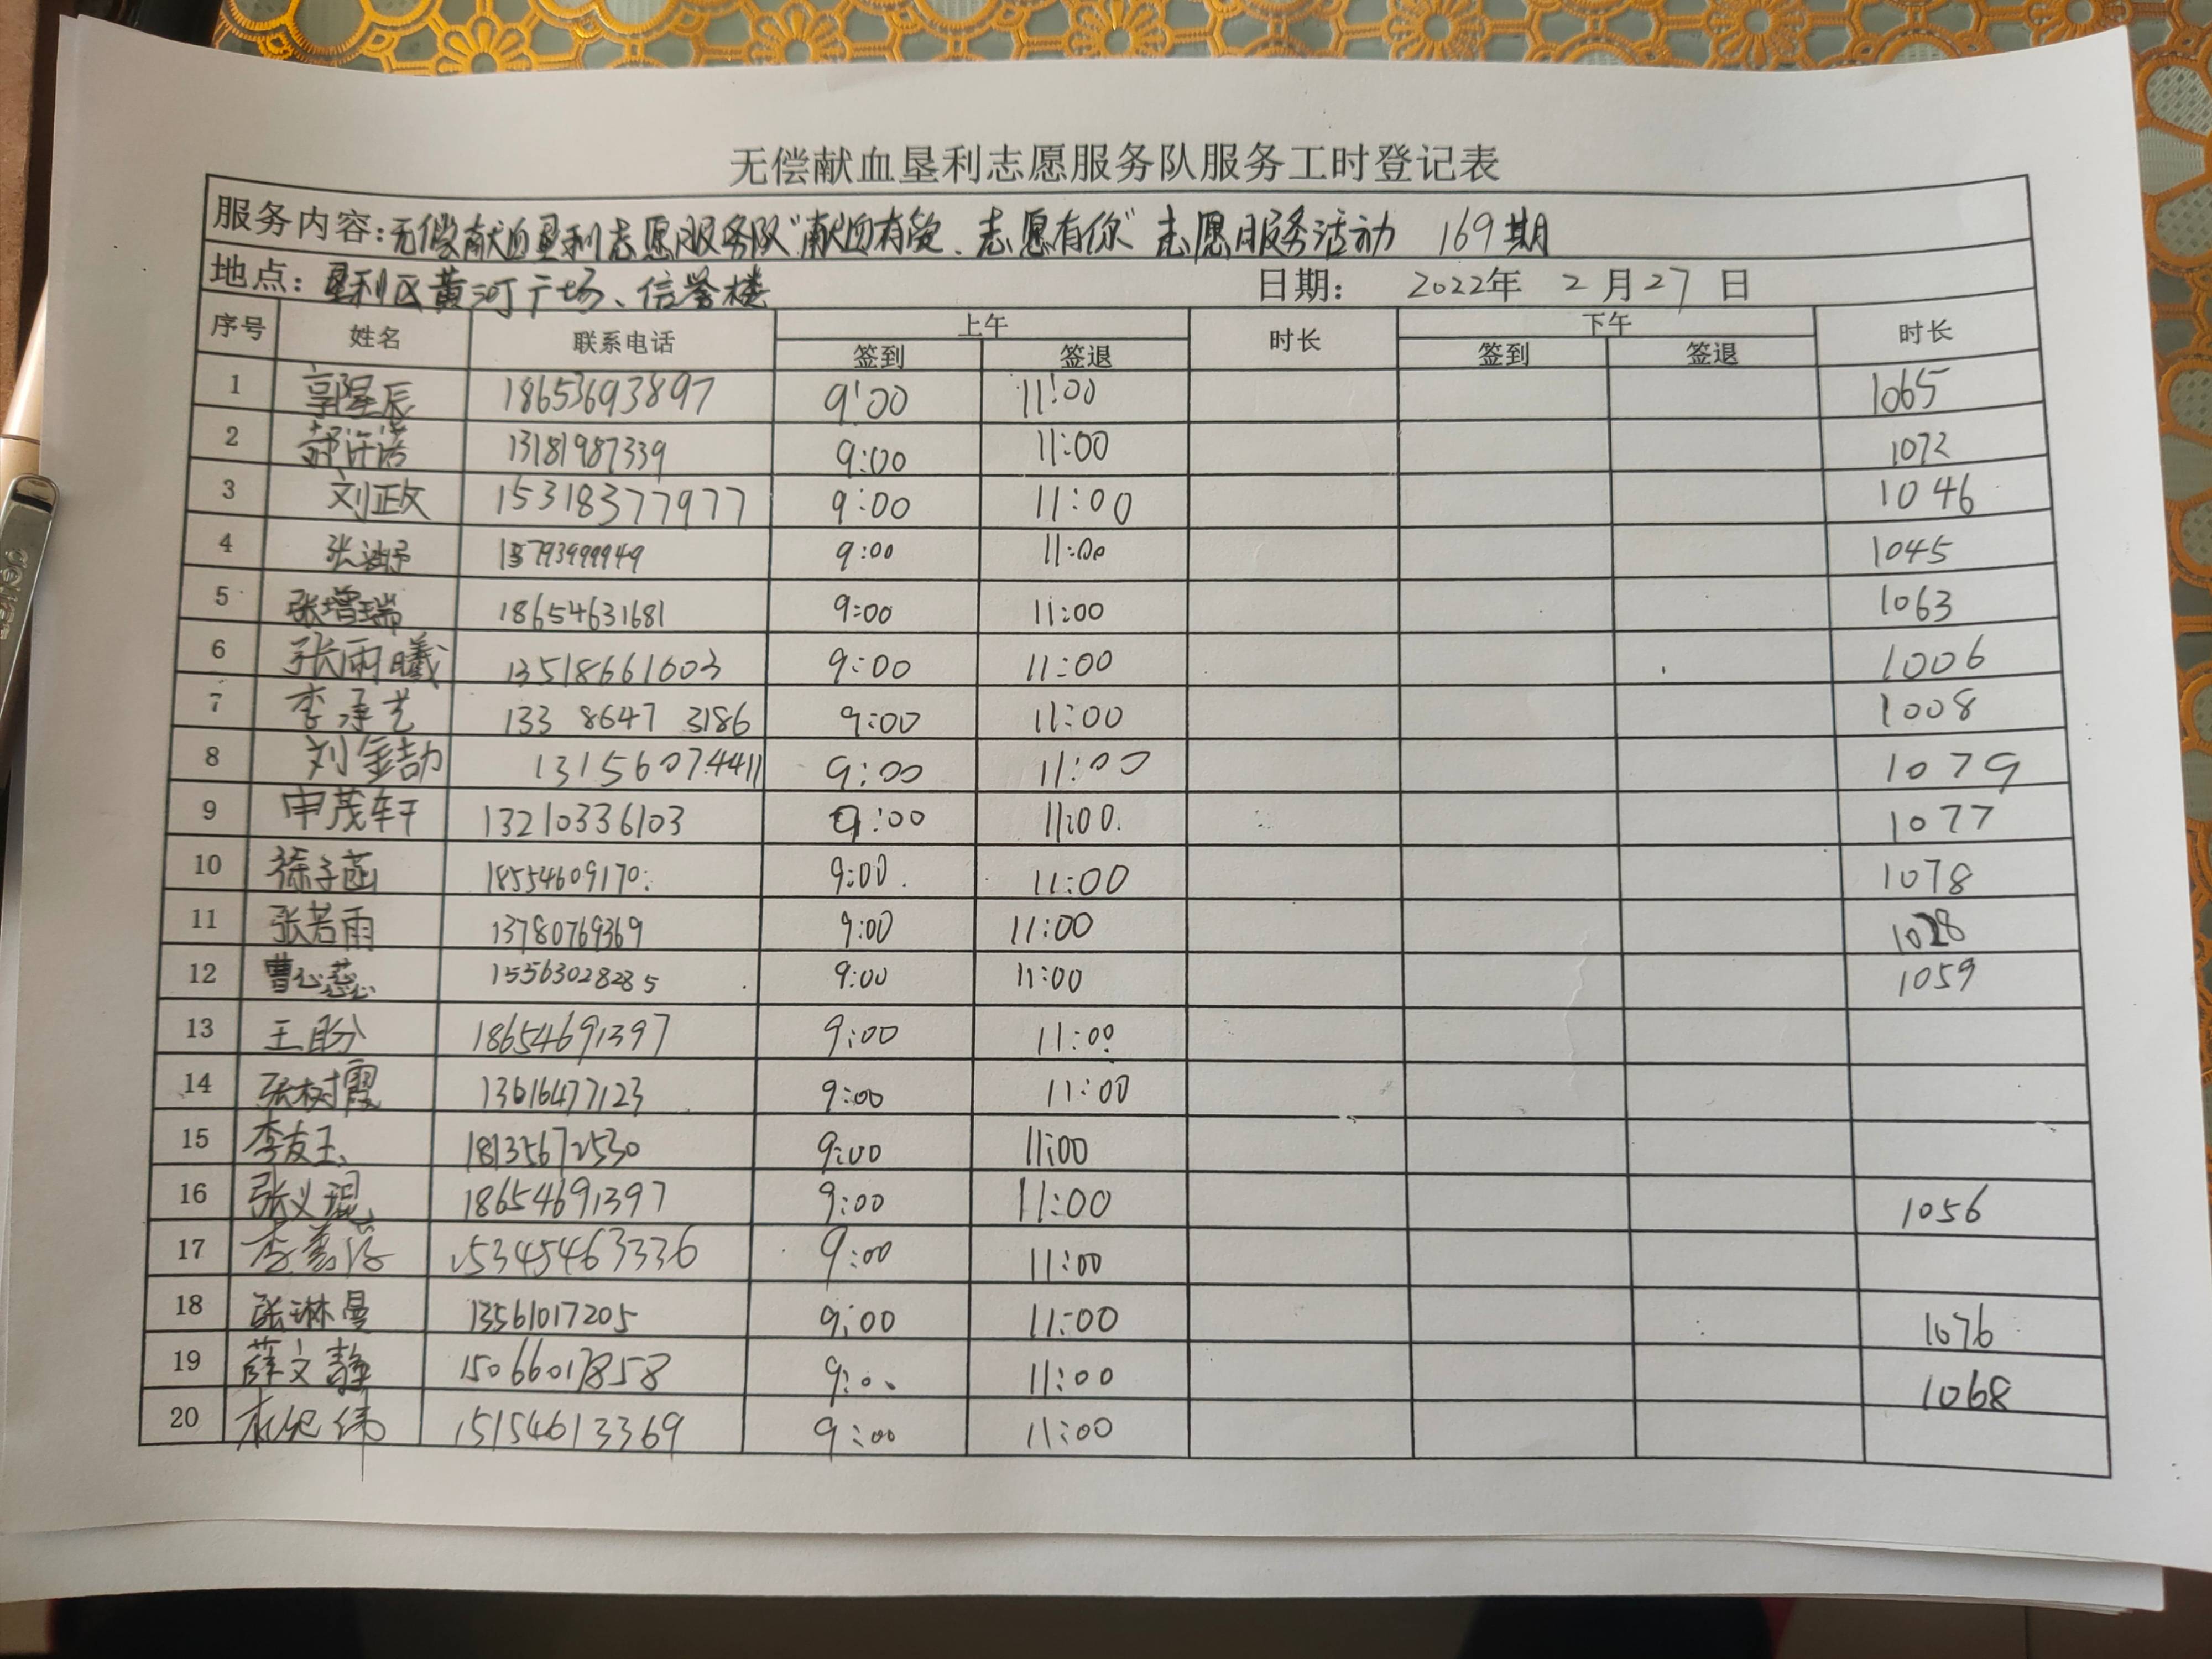 无偿献血垦利志愿服务队服务工时登记表
服务内容:无偿献血垦利志愿服务队"献血有爱、志愿有你"志愿服务活动 169期
地点:垦利区黄河广场、信誉楼 日期: 2022年 2月27日
序号 姓名 联系电话 上午 时长 下午 时长
签到 签退 签到 签退
1 郭星辰 18653693897 9:00 11:00 1065
2 13181987339 9:00 11:00 1072
3 刘政 15318377977 9:00 11:00 1046
4 张 13793999949 9:00 11:00 1045
5 张增瑞 18654631681 9:00 11:00 1063
6 张雨曦 13518661603 9:00 11:00 1006
7 李承艺 133 8647 3186 9:00 11:00 1008
8 刘金喆 13156074411 9:00 11:00 1079
9 申茂轩 13210336103 9:00 11:00. 1077
10 徐子茴 18554609170. 9:00. 11:00 1078
11 张若雨 13780769369 9:00 11:00 1028
12 曹心蕊 15563028285 9:00 11:00 1059
13 王盼 18654691397 9:00 11:00
14 张树霞 13616477123 9:00 11:00
15 李友玉 18135672530 9:00 11:00
16 张义琨 18654691397 9:00 11:00 1056
17 李 15345463336 9:00 11:00
18 张琳曼 13561017205 9:00 11:00 1076
19 薛文静 15066017858 9:00 11:00 1068
20 15154613369 9:00 11:00
deli